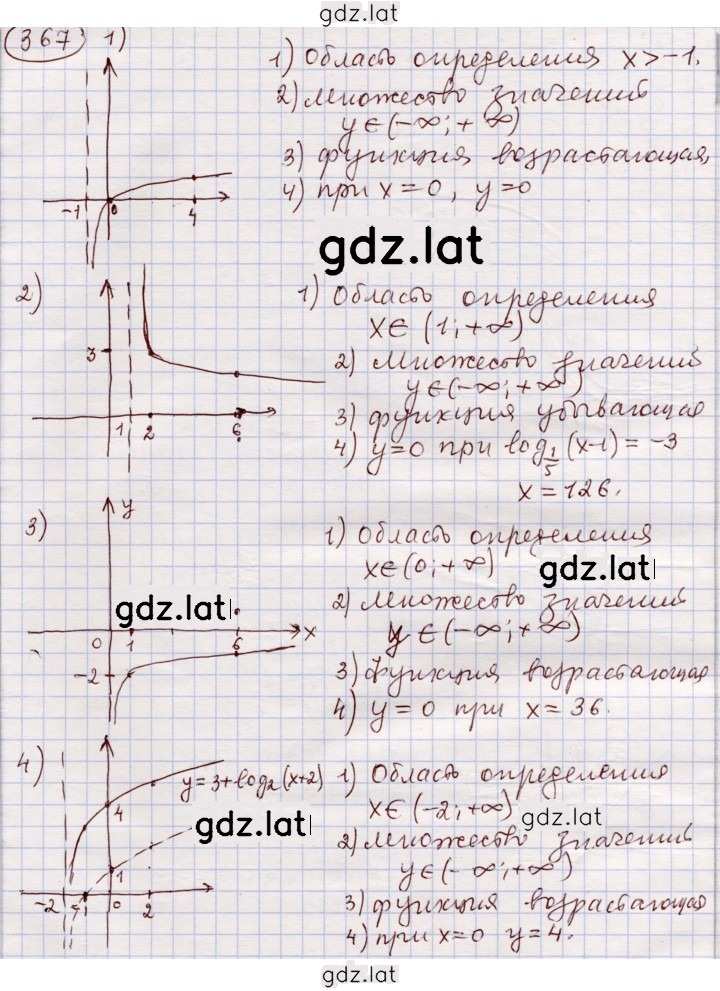 gdz.lat
367 1)
1) Область определения x > -1.
2) Множество значений
y ∈ (-∞; +∞)
3) функция возрастающая,
4) при x = 0, y = 0
-1 0 4
gdz.lat
2)
1) Область определения
x ∈ (1; +∞)
2) Множество значений
y ∈ (-∞; +∞)
3) функция убывающая
4) y = 0 при log 1/5 (x-1) = -3
x = 126.
3
1 2 6
3)
y
1) Область определения
x ∈ (0; +∞)
gdz.lat
2) Множество значений
y ∈ (-∞; +∞)
3) Функция возрастающая
4) y = 0 при x = 36.
gdz.lat
0 1 6 x
-2
4)
y = 3 + log₂(x+2)
1) Область определения
x ∈ (-2; +∞)
gdz.lat
2) Множество значений
y ∈ (-∞; +∞)
3) функция возрастающая
4) при x = 0 y = 4.
4
gdz.lat
1
-2 -1 0 2
gdz.lat